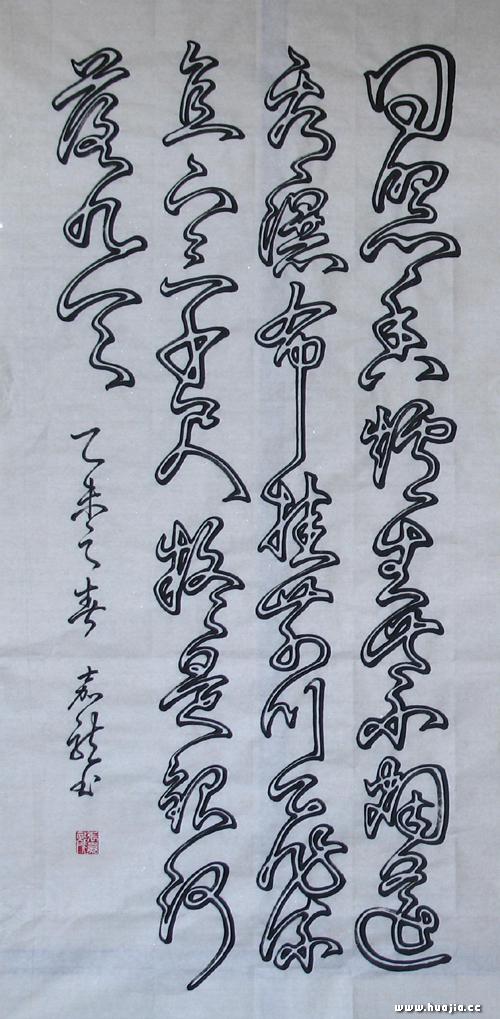 日照香炉生紫烟遥
看瀑布挂前川飞流
直下三千尺疑是银河
落九天
乙未之春 书
www.huajia.cc